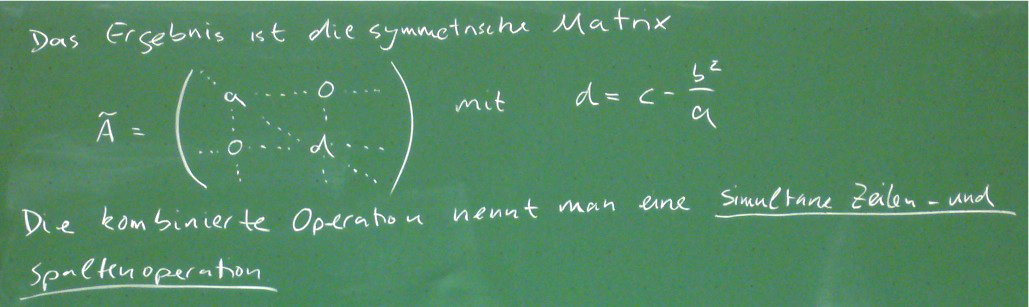 Das Ergebnis ist die symmetrische Matrix
Ã = ( a ... 0 ... ; ... 0 ... d ... ) mit d = c - b²/a
Die kombinierte Operation nennt man eine simultane Zeilen- und
Spaltenoperation